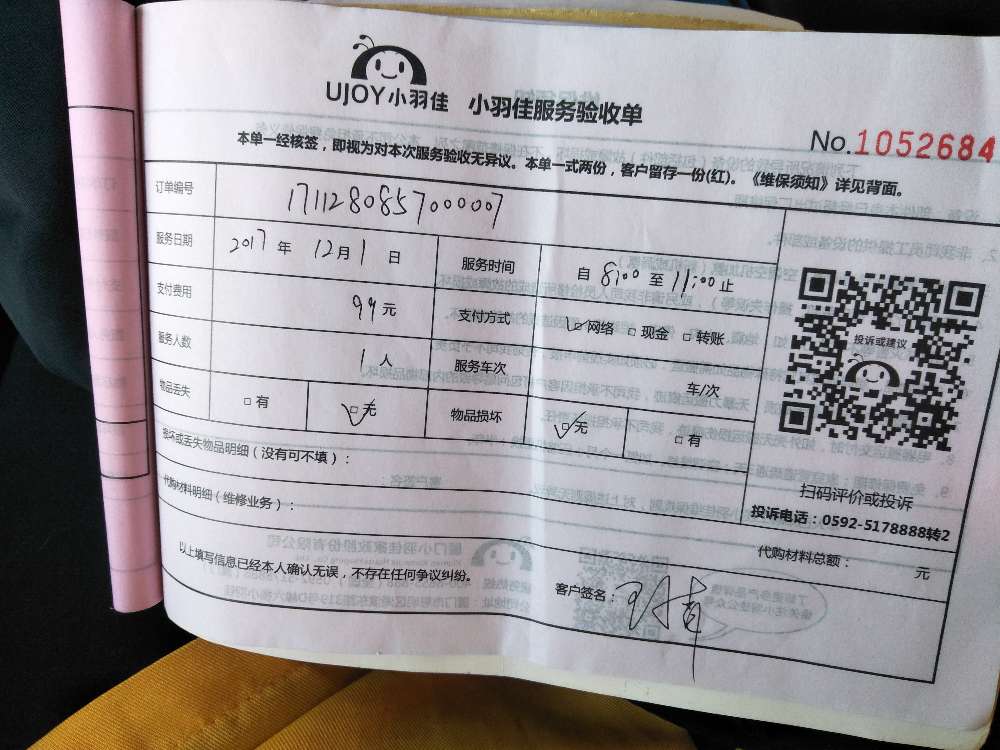 UJOY小羽佳 小羽佳服务验收单
No.1052684
本单一经核签，即视为对本次服务验收无异议。本单一式两份，客户留存一份(红)。《维保须知》详见背面。
订单编号 171128085700007
服务日期 2017 年 12 月 1 日 服务时间 自 8:00 至 11:00 止
支付费用 99 元 支付方式 ☑网络 □现金 □转账
服务人数 1 人 服务车次 车/次
物品丢失 □有 ☑无 物品损坏 ☑无 □有
投诉或建议
扫码评价或投诉
投诉电话：0592-5178888转2
损坏或丢失物品明细（没有可不填）：
代购材料明细（维修业务）：
代购材料总额： 元
以上填写信息已经本人确认无误，不存在任何争议纠纷。
客户签名：